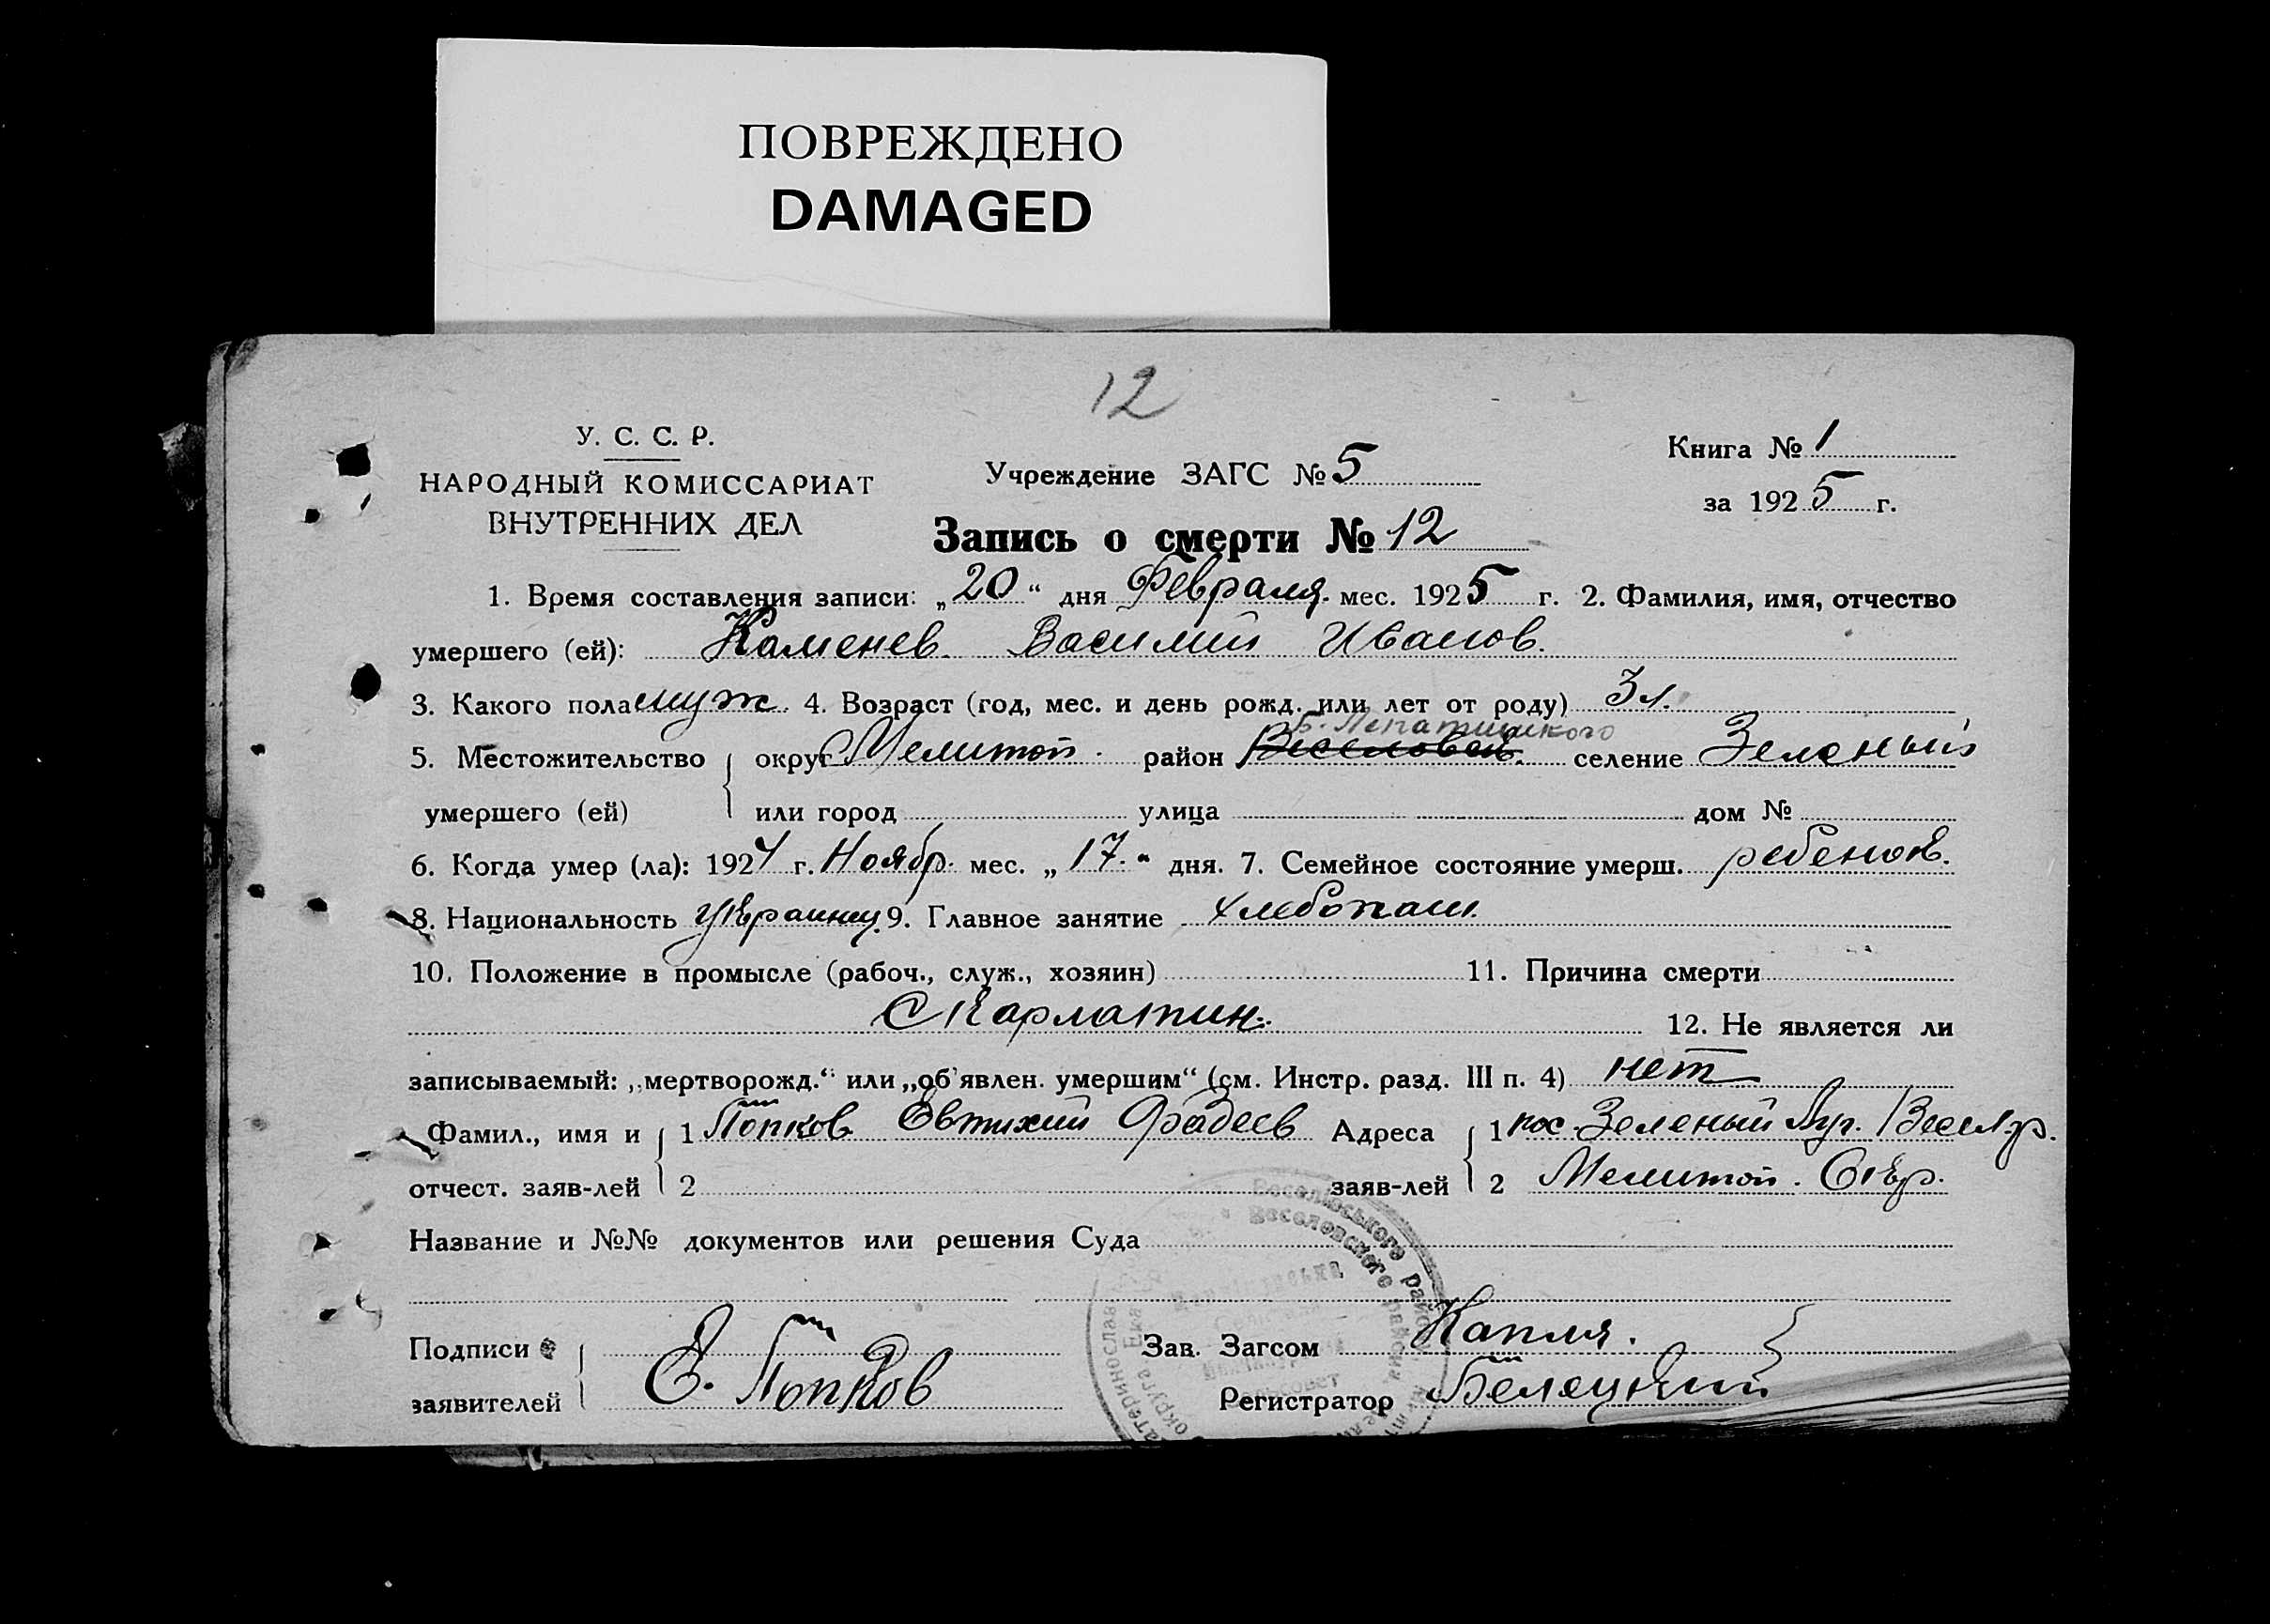 ПОВРЕЖДЕНО
DAMAGED
12
У. С. С. Р.
НАРОДНЫЙ КОМИССАРИАТ
ВНУТРЕННИХ ДЕЛ
Учреждение ЗАГС № 5
Книга № 1
за 1925 г.
Запись о смерти № 12
1. Время составления записи: „20“ дня Февраля мес. 1925 г. 2. Фамилия, имя, отчество
умершего (ей): Каменев. Василий Иванов.
3. Какого пола муж. 4. Возраст (год, мес. и день рожд. или лет от роду) 3 л.
Б. Лепатишского
5. Местожительство округ Мелитоп. район Веселовск. селение Зеленый
умершего (ей) или город улица дом №
6. Когда умер (ла): 1924 г. Ноябр. мес. „17.“ дня. 7. Семейное состояние умерш. ребенок.
8. Национальность украинц. 9. Главное занятие хлебопаш.
10. Положение в промысле (рабоч., служ., хозяин) 11. Причина смерти
Скарлатин. 12. Не является ли
записываемый: „мертворожд.“ или „об'явлен. умершим“ (см. Инстр. разд. III п. 4) нет
Фамил., имя и 1 Попков Евтихий Фадеев Адреса 1 пос. Зеленый Луг. Весел. р.
отчест. заяв-лей 2 заяв-лей 2 Мелитоп. Окр.
Название и №№ документов или решения Суда
Веселівського району
Веселовского района
округа
Подписи Зав. Загсом Капля.
заявителей Е. Попков Регистратор Белецкий